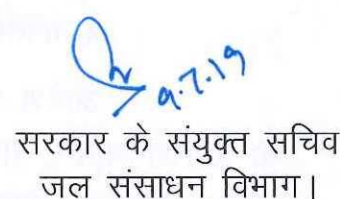 9.7.19
सरकार के संयुक्त सचिव
जल संसाधन विभाग।